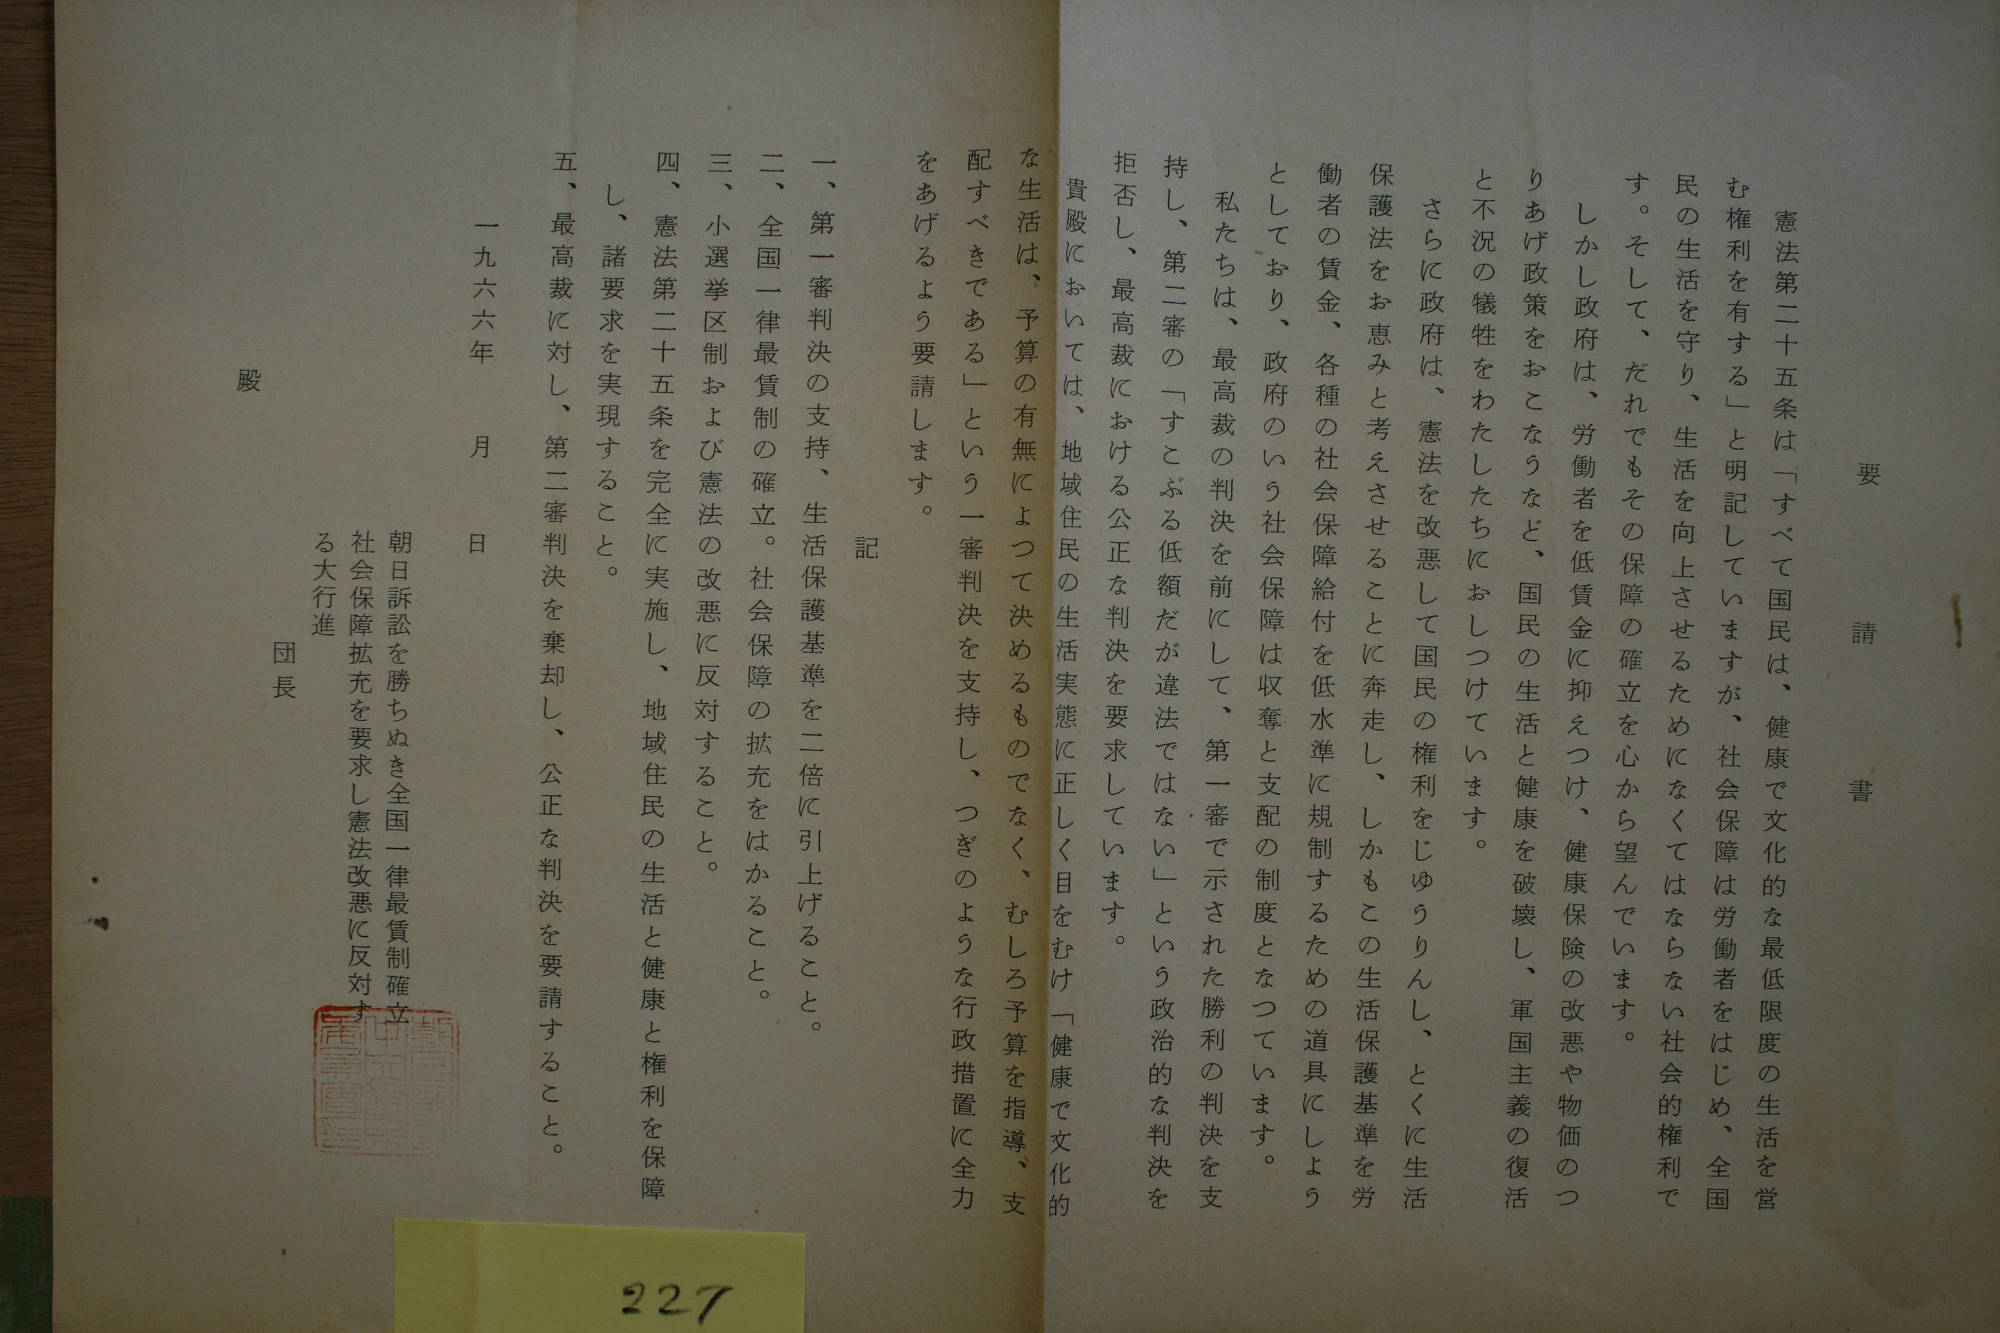 要請書
憲法第二十五条は「すべて国民は、健康で文化的な最低限度の生活を営
む権利を有する」と明記していますが、社会保障は労働者をはじめ、全国
民の生活を守り、生活を向上させるためになくてはならない社会的権利で
す。そして、だれでもその保障の確立を心から望んでいます。
しかし政府は、労働者を低賃金に抑えつけ、健康保険の改悪や物価のつ
りあげ政策をおこなうなど、国民の生活と健康を破壊し、軍国主義の復活
と不況の犠牲をわたしたちにおしつけています。
さらに政府は、憲法を改悪して国民の権利をじゆうりんし、とくに生活
保護法をお恵みと考えさせることに奔走し、しかもこの生活保護基準を労
働者の賃金、各種の社会保障給付を低水準に規制するための道具にしよう
としており、政府のいう社会保障は収奪と支配の制度となつています。
私たちは、最高裁の判決を前にして、第一審で示された勝利の判決を支
持し、第二審の「すこぶる低額だが違法ではない」という政治的な判決を
拒否し、最高裁における公正な判決を要求しています。
貴殿においては、地域住民の生活実態に正しく目をむけ「健康で文化的
な生活は、予算の有無によつて決めるものでなく、むしろ予算を指導、支
配すべきである」という一審判決を支持し、つぎのような行政措置に全力
をあげるよう要請します。
記
一、第一審判決の支持、生活保護基準を二倍に引上げること。
二、全国一律最賃制の確立。社会保障の拡充をはかること。
三、小選挙区制および憲法の改悪に反対すること。
四、憲法第二十五条を完全に実施し、地域住民の生活と健康と権利を保障
し、諸要求を実現すること。
五、最高裁に対し、第二審判決を棄却し、公正な判決を要請すること。
一九六六年 月 日
朝日訴訟を勝ちぬき全国一律最賃制確立
社会保障拡充を要求し憲法改悪に反対す
る大行進
団長
殿
227